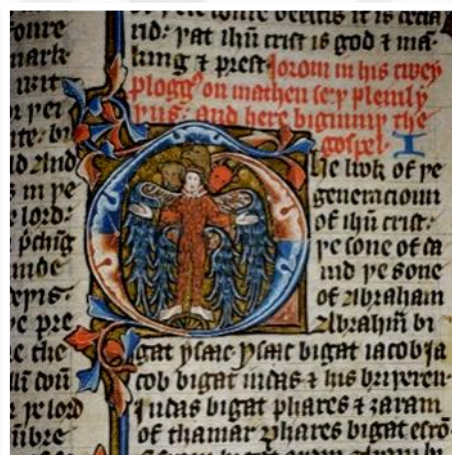 oure
mark
writ
yei
ite: bi
ld And
s in ye
lord:
pchīg
inde
epis·
e pre
e the
lī
r ye lord
ūbre
rid: yat ihū crist is god & ma-
king & prest Ierom in his twey
plogg on matheu sey plenily
yus· and here bigynniy the
gospel· I
he book of ye
generacioun
of ihū crist:
ye sone of da
uid ye sone
of Abraham
Abrahā bi
gat ysaac· ysaac bigat iacob ia
cob bigat iudas & his briyeren·
Iudas bigat phares & zaram
of thamar phares bigat esrō·